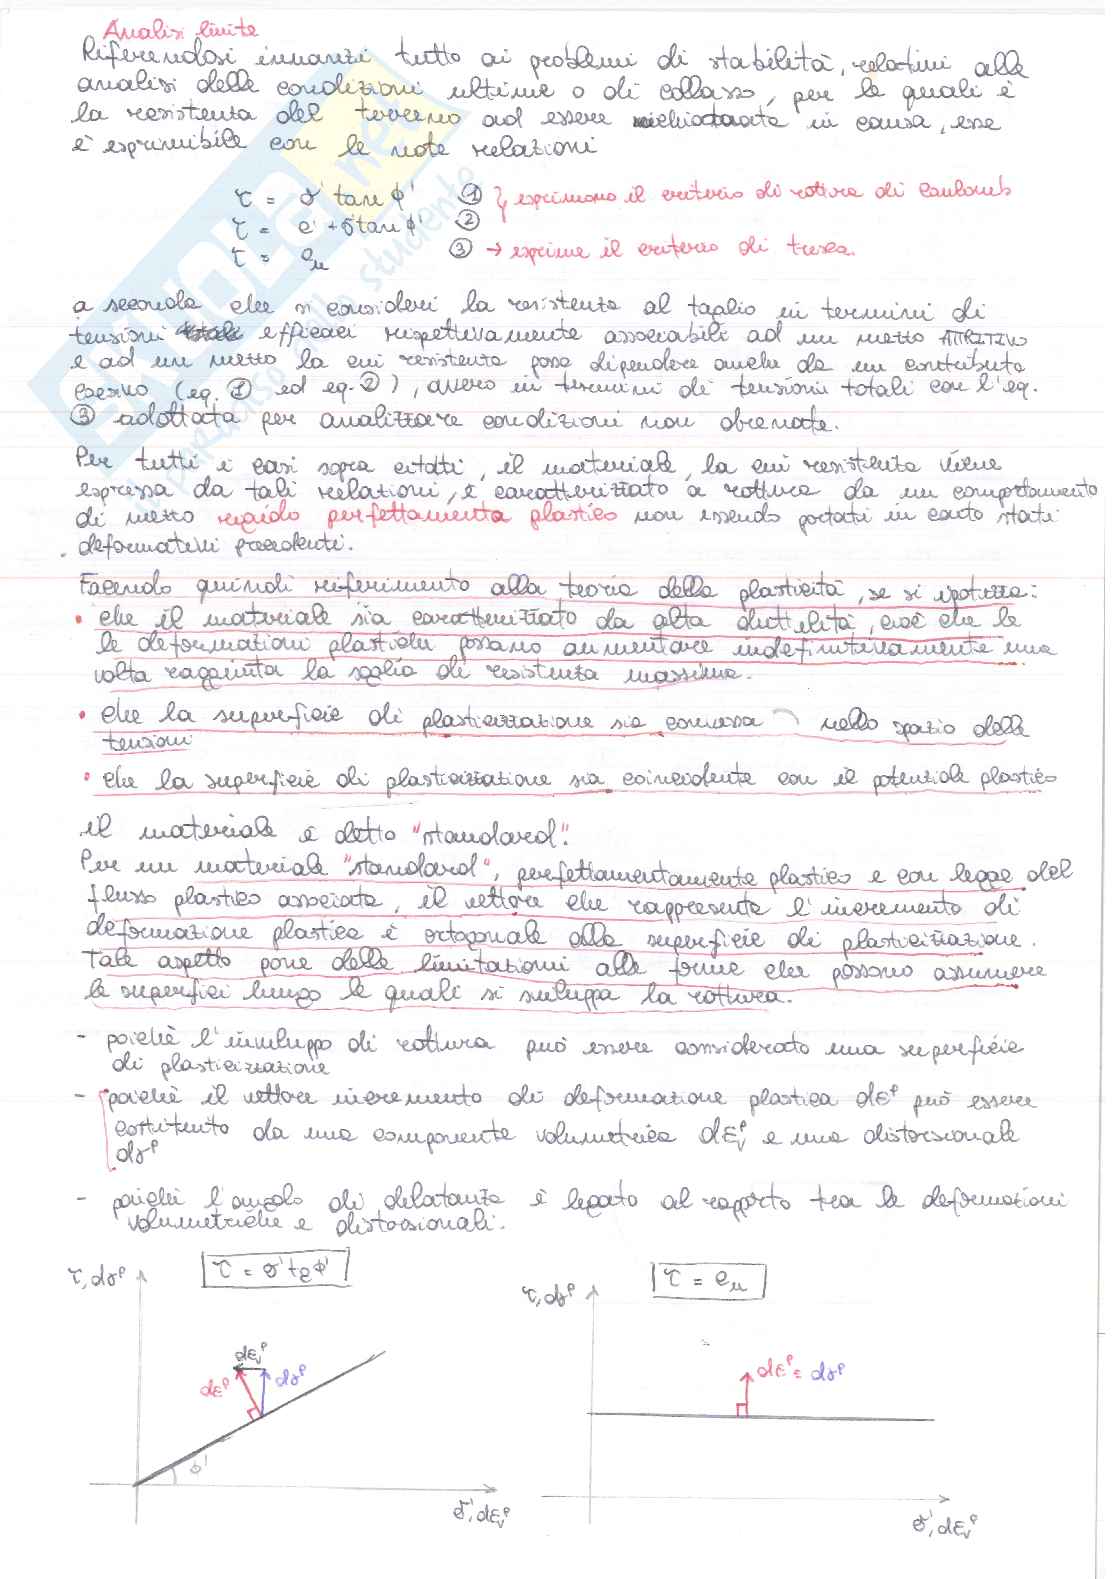 Analisi limite
Riferendosi innanzi tutto ai problemi di stabilità, relativi alle
analisi delle condizioni ultime o di collasso, per le quali è
la resistenza del terreno ad essere chiamata in causa, essa
è esprimibile con le note relazioni
τ = σ' tan ϕ' ① } esprimono il criterio di rottura di Coulomb
τ = c' + σ' tan ϕ' ②
τ = cu ③ → esprime il criterio di tresca.
a seconda che si consideri la resistenza al taglio in termini di
tensioni efficaci rispettivamente associabili ad un mezzo ATTRITIVO
e ad un mezzo la cui resistenza possa dipendere anche da un contributo
coesivo (eq. ① ed eq. ②), ovvero in termini di tensioni totali con l'eq.
③ adottata per analizzare condizioni non drenate.
Per tutti i casi sopra citati, il materiale, la cui resistenza viene
espressa da tali relazioni, è caratterizzato a rottura da un comportamento
di mezzo rigido perfettamente plastico non essendo portati in conto stati
deformativi precedenti.
Facendo quindi riferimento alla teoria della plasticità, se si ipotizza:
• che il materiale sia caratterizzato da alta duttilità, cioè che le
le deformazioni plastiche possano aumentare indefinitivamente una
volta raggiunta la soglia di resistenza massima.
• che la superficie di plasticizzazione sia convessa nello spazio delle
tensioni
• che la superficie di plasticizzazione sia coincidente con il potenziale plastico
il materiale è detto "standard".
Per un materiale "standard", perfettamentamente plastico e con legge del
flusso plastico associata, il vettore che rappresenta l'incremento di
deformazione plastica è ortogonale alla superficie di plasticizzazione.
Tale aspetto pone delle limitazioni alle forme che possono assumere
le superfici lungo le quali si sviluppa la rottura.
- poichè l'inviluppo di rottura può essere considerato una superficie
di plasticizzazione
- poichè il vettore incremento di deformazione plastica dεᵖ può essere
costituito da una componente volumetrica dεvᵖ e una distorsionale
dγᵖ
- poichè l'angolo di dilatanza è legato al rapporto tra le deformazioni
volumetriche e distorsionali.
τ, dγᵖ τ = σ' tg ϕ'
τ, dγᵖ τ = cu
dεvᵖ
dεᵖ dγᵖ
dεᵖ = dγᵖ
ϕ'
σ', dεvᵖ
σ', dεvᵖ
SKUOLA.net
il paradiso dello studente